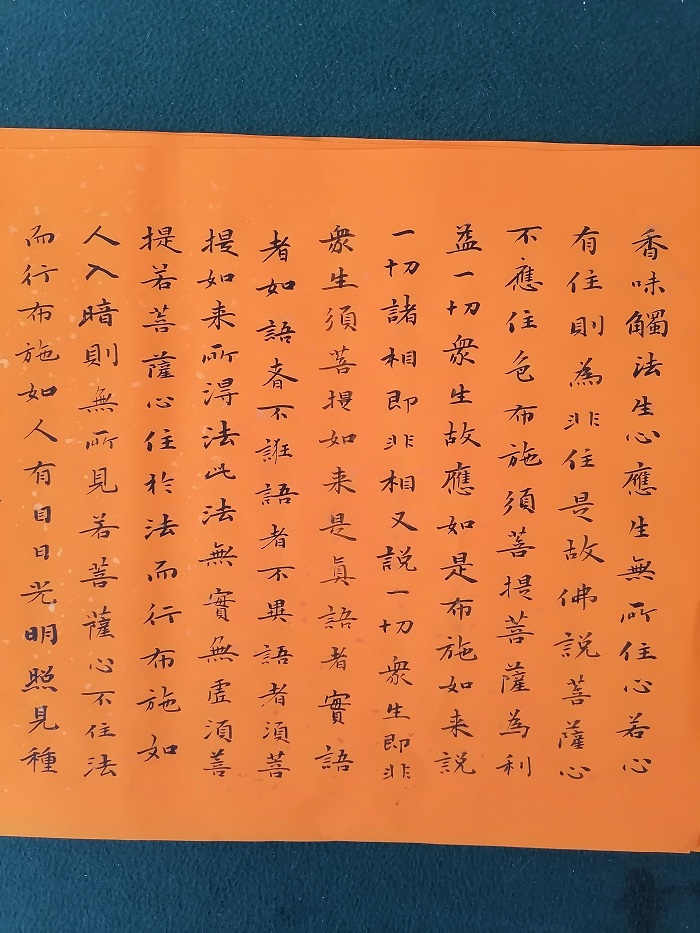 香味觸法生心應生無所住心若心
有住則為非住是故佛說菩薩心
不應住色布施須菩提菩薩為利
益一切衆生故應如是布施如来說
一切諸相即非相又說一切衆生即非
衆生須菩提如来是真語者實語
者如語者不誑語者不異語者須菩
提如来所得法此法無實無虛須菩
提若菩薩心住於法而行布施如
人入暗則無所見若菩薩心不住法
而行布施如人有目日光明照見種